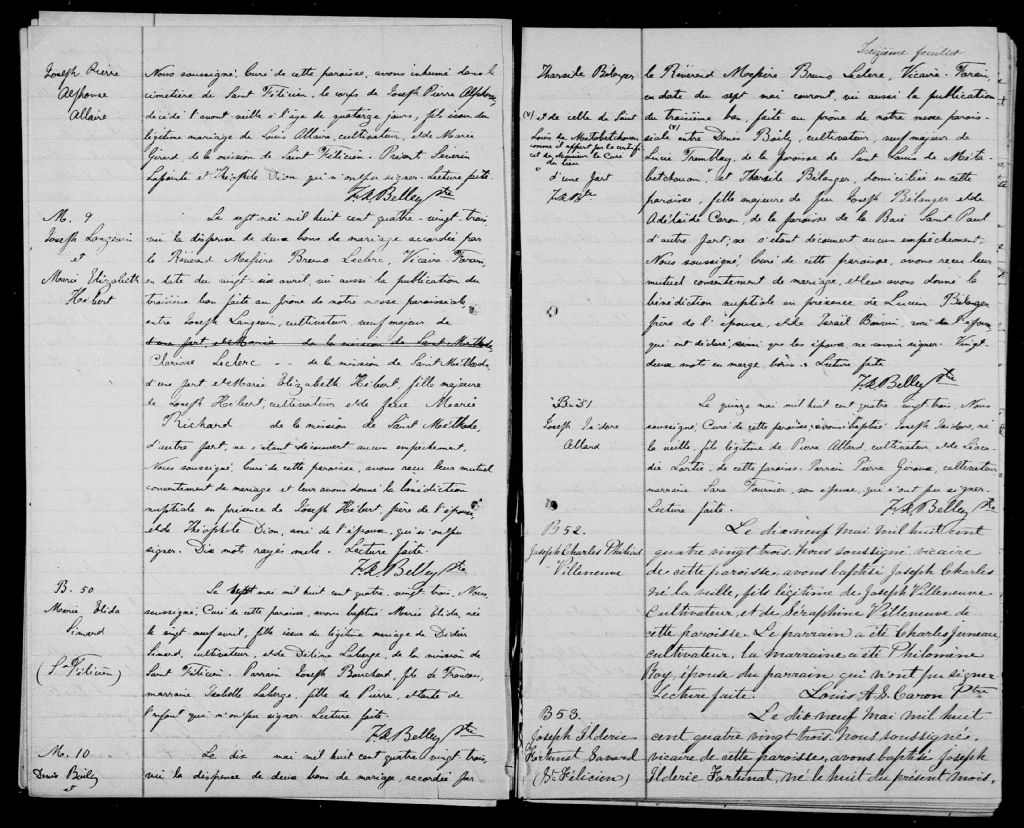 Joseph Pierre
Alphonse
Allaire
Nous soussigné, Curé de cette paroisse, avons inhumé dans le
cimetière de Saint Félicien, le corps de Joseph Pierre Alphonse
décédé l'avant veille à l'âge de quatorze jours, fils issu du
légitime mariage de Louis Allaire, cultivateur, et de Marie
Girard, de la mission de Saint Félicien. Présent Séverin
Lapointe et Théophile Dion qui n'ont pu signer. Lecture faite.
F.X. Belley Ptre
M. 9
Joseph Langevin
et
Marie Elizabeth
Hébert
Le sept mai mil huit cent quatre-vingt-trois,
vu la dispense de deux bans de mariage accordée par
le Révérend Messire Bruno Leclerc, Vicaire Forain,
en date du vingt-six avril, vu aussi la publication du
troisième ban faite au prône de notre messe paroissiale,
entre Joseph Langevin, cultivateur, veuf majeur de
d'une part, et Marie de la mission de Saint Méthode,
Clarisse Leclerc - de la mission de Saint Méthode,
d'une part et Marie Elizabeth Hébert, fille majeure
de Joseph Hébert, cultivateur et de feue Marie
Richard de la mission de Saint Méthode,
d'autre part, ne s'étant découvert aucun empêchement,
Nous soussigné, Curé de cette paroisse, avons reçu leur mutuel
consentement de mariage et leur avons donné la bénédiction
nuptiale en présence de Joseph Hébert, père de l'épouse,
et de Théophile Dion, ami de l'époux, qui n'ont pu
signer. Dix mots rayés nuls. Lecture faite.
F.X. Belley Ptre
B. 50
Marie Elida
Simard
(St Félicien)
Le sept mai mil huit cent quatre-vingt-trois, Nous
soussigné, Curé de cette paroisse, avons baptisé Marie Elida, née
le vingt-neuf avril, fille issue du légitime mariage de Didier
Simard, cultivateur, et de Délina Laberge, de la mission de
Saint Félicien. Parrain Joseph Bouchard, fils de François,
marraine Isabelle Laberge, fille de Pierre, et tante de
l'enfant qui n'ont pu signer. Lecture faite.
F.X. Belley Ptre
M. 10
Denis Boily
et
Le dix mai mil huit cent quatre vingt trois,
vu la dispense de deux bans de mariage accordée par
Treizième feuillet
Tharsile Bélanger
(v) et de celle de Saint
Louis de Métabetchouan
comme il appert par le certifi-
cat de monsieur le Curé
du lieu
d'une part
F.X.B. Ptre
le Révérend Messire Bruno Leclerc, Vicaire-Forain,
en date du sept mai courant, vu aussi la publication
du troisième ban, faite au prône de notre messe parois-
siale (v) entre Denis Boily, cultivateur, veuf majeur de
Lucie Tremblay, de la paroisse de Saint Louis de Méta-
betchouan, et Tharsile Bélanger, domiciliée en cette
paroisse, fille majeure de feu Joseph Bélanger et de
Adélaïde Caron, de la paroisse de la Baie Saint Paul
d'autre part; ne s'étant découvert aucun empêchement,
Nous soussigné, Curé de cette paroisse, avons reçu leur
mutuel consentement de mariage, et leur avons donné la
bénédiction nuptiale en présence de Lucien Bélanger
frère de l'épouse, et de Israïl Boivin, ami de l'époux,
qui ont déclaré, ainsi que les époux, ne savoir signer. Vingt-
deux mots en marge bons. Lecture faite
F.X. Belley Ptre
B. 51
Joseph Isidore
Allard
Le quinze mai mil huit cent quatre-vingt-trois, Nous
soussigné, Curé de cette paroisse, avons baptisé Joseph Isidore, né
la veille, fils légitime de Pierre Allard, cultivateur et de Léoca-
die Lortie, de cette paroisse. Parrain Pierre Giroux, cultivateur,
marraine Sara Fournier, son épouse, qui n'ont pu signer.
Lecture faite. F.X. Belley Ptre
B 52.
Joseph Charles Philéas
Villeneuve
Le dix-neuf Mai mil huit cent
quatre vingt trois. Nous soussigné vicaire
de cette paroisse, avons baptisé Joseph Charles
né la veille, fils légitime de Joseph Villeneuve
Cultivateur, et de Séraphine Villeneuve de
cette paroisse. Le parrain a été Charles Juneau
cultivateur, la marraine a été Philomène
Roy, épouse du parrain qui n'ont pu signer.
Lecture faite. Louis A. S. Caron Ptre
B 53.
Joseph Ilderic
Fortunat Savard
(St Félicien)
Le dix-neuf Mai mil huit
cent quatre vingt trois. Nous soussigné,
vicaire de cette paroisse, avons baptisé Joseph
Ilderic Fortunat, né le huit du présent mois,